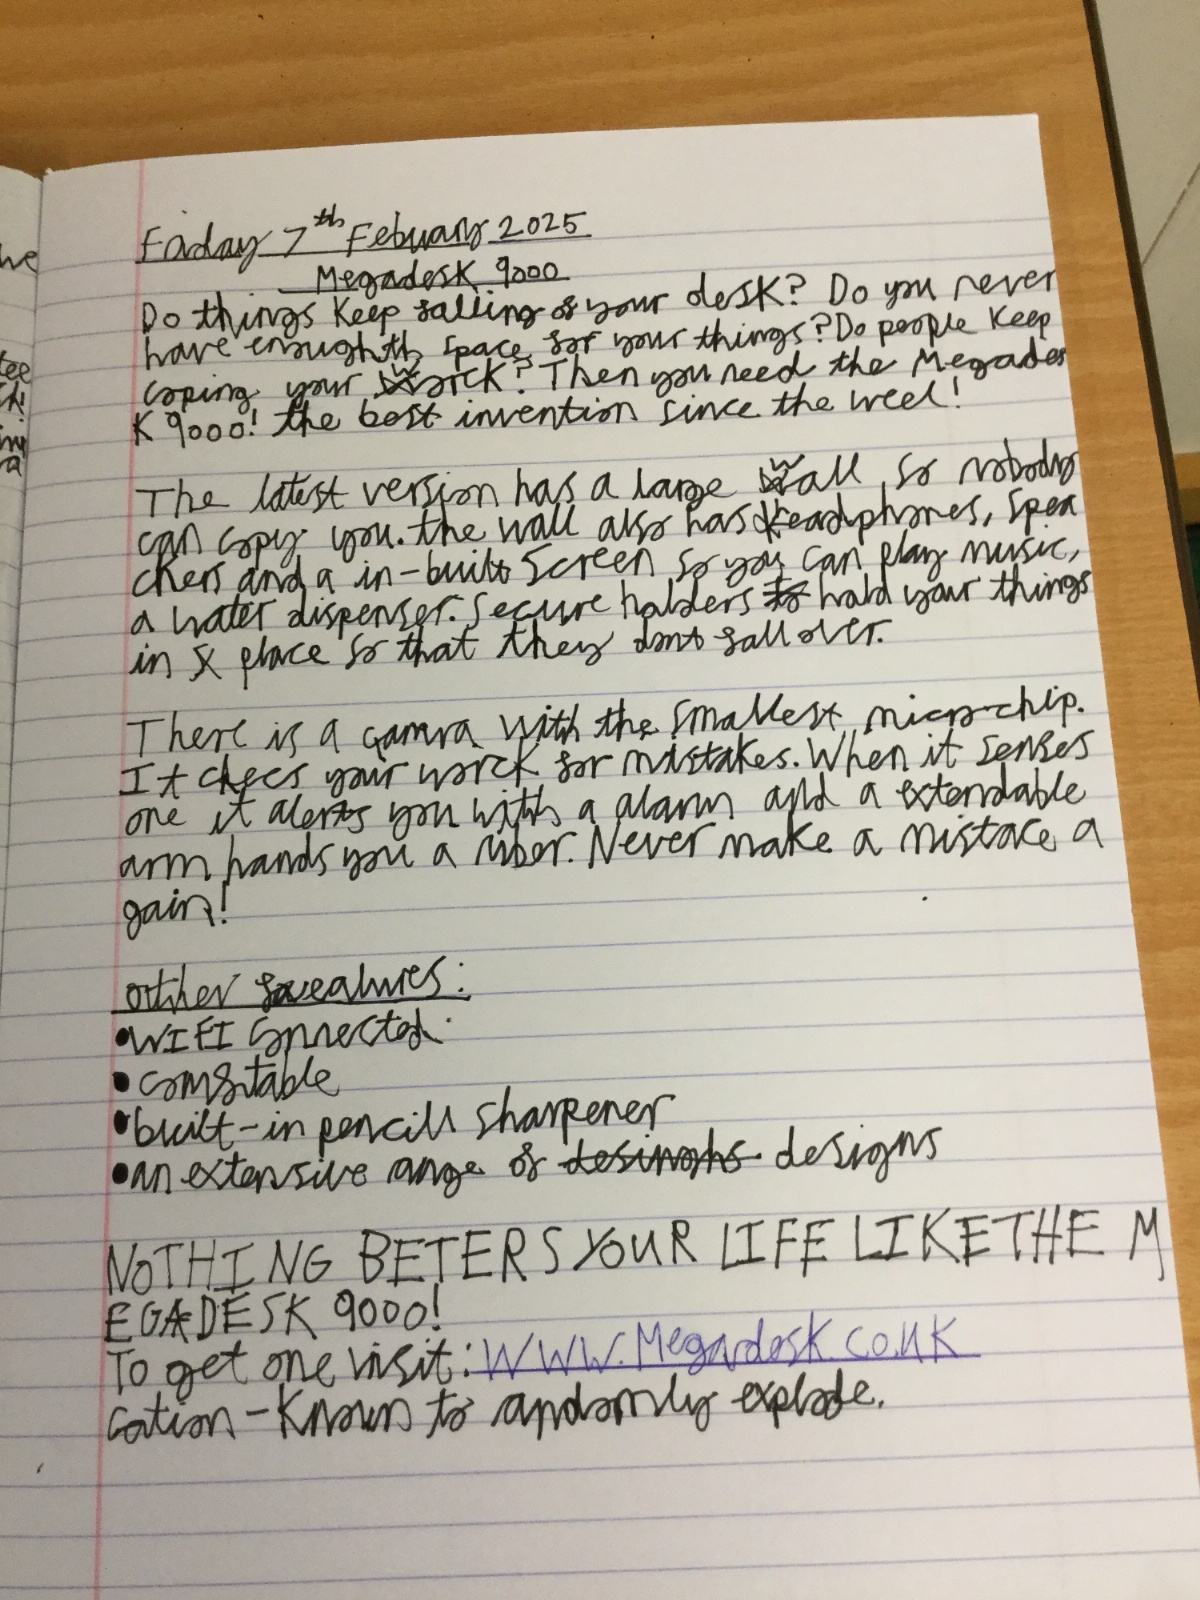 Friday 7th Febuary 2025
Megadesk 9000
Do things keep falling of your desk? Do you never
have enough space for your things? Do people keep
coping your worck? Then you need the Megades
k 9000! the best invention since the weel!
The latest version has a large wall so nobody
can copy you. the wall also has headphones, spea
ckers and a in-built screen so you can play music,
a water dispenser. Secure holders hold your things
in place so that they dont fall over.
There is a camra with the smallest micro-chip.
It checs your worck for mistakes. When it senses
one it alerts you with a alarm and a extendable
arm hands you a ruber. Never make a mistace a
gain!
other featurres:
•WIFI connected
•comftable
•built-in pencill sharpener
•an extensive range of desinghs designs
NOTHING BETERS YOUR LIFE LIKE THE M
EGADESK 9000!
To get one visit: WWW.Megadesk.co.uk
cation - Known to randomly explode.